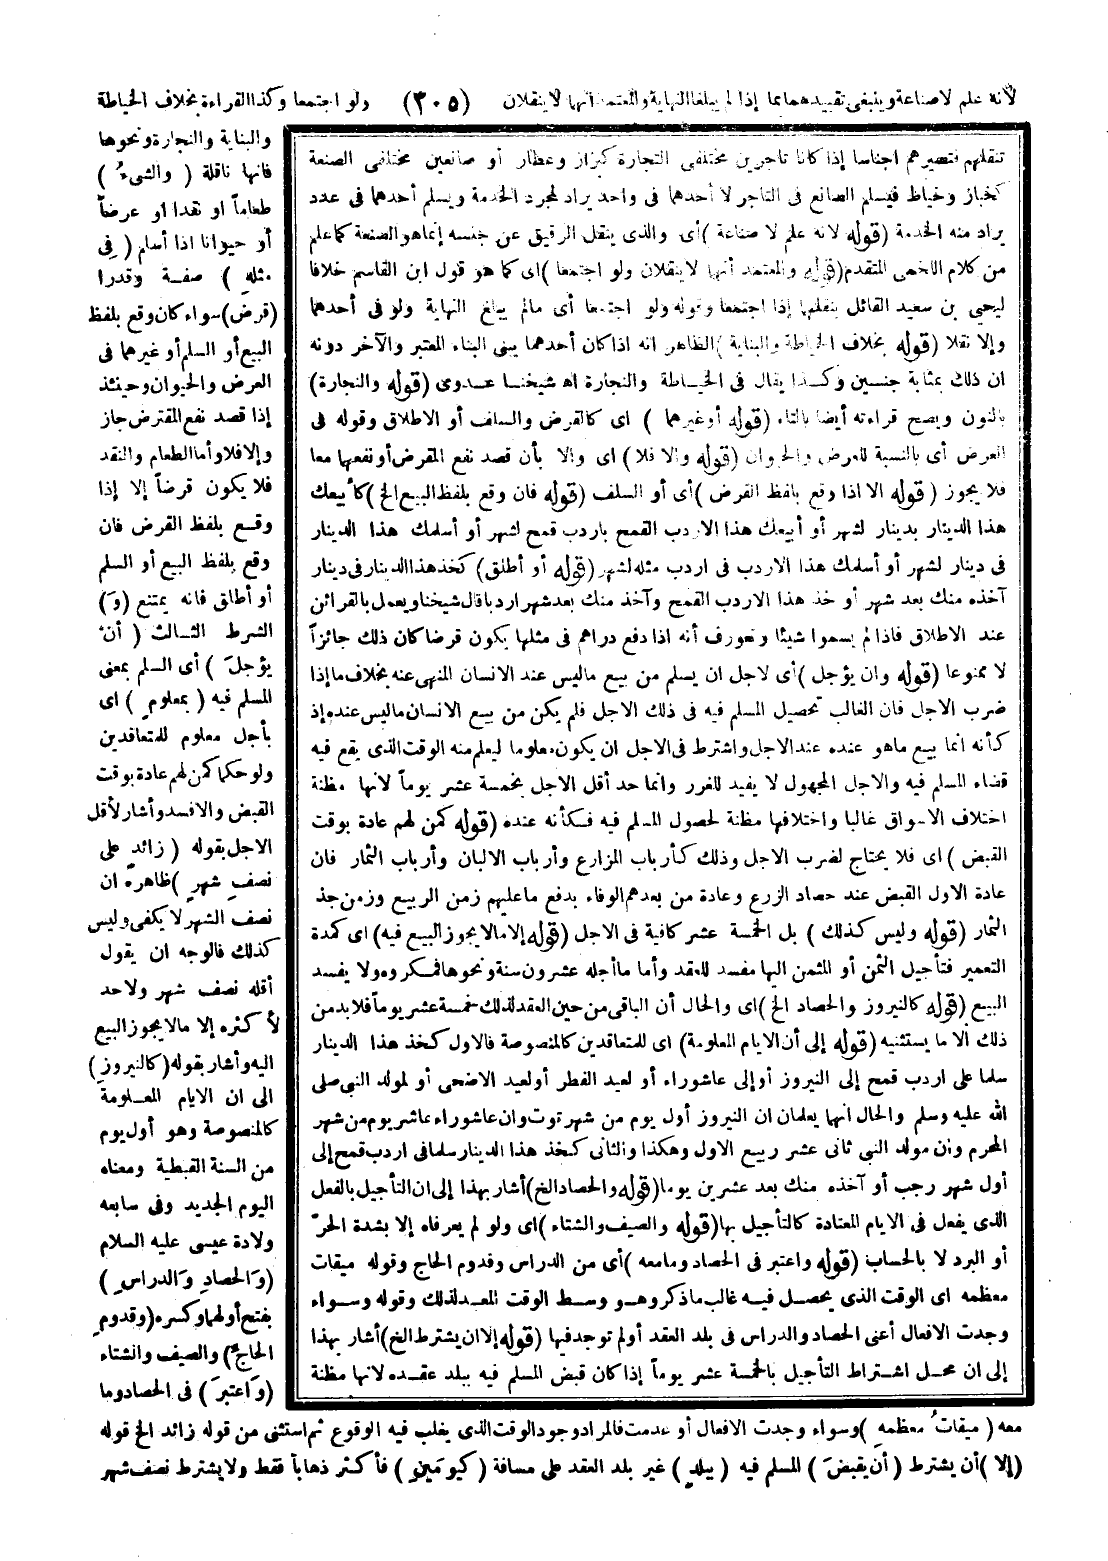 لأنه علم لا صناعة وينبغى تقييدهما بما إذا لم يبلغا النهاية والمعتمد أنهما لا ينقلان (٢٠٥) ولو اجتمعا وكذا القراءة بخلاف الخياطة
والبناية والنجارة ونحوها
فانها ناقلة ( والشىءُ )
طعاماً او نقدا او عرضاً
أو حيوانا اذا أسلم ( فِى
مثلهِ ) صفة وقدرا
(قرض) سواء كان وقع بلفظ
البيع أو السلم أو غيرهما فى
العرض والحيوان وحينئذ
إذا قصد نفع المقترض جاز
وإلا فلا وأما الطعام والنقد
فلا يكون قرضاً إلا إذا
وقع بلفظ القرض فان
وقع بلفظ البيع أو السلم
أو أطلق فانه يمتنع (وَ)
الشرط الثالث ( أنْ
يؤجلَ ) أى السلم بمعنى
المسلم فيه ( بمعلومٍ ) اى
بأجل معلوم للمتعاقدين
ولو حكما كمن لهم عادة بوقت
القبض والا فسد وأشار لأقل
الاجل بقوله ( زائدٍ على
نصفِ شهرٍ ) ظاهره ان
نصف الشهر لا يكفى وليس
كذلك فالوجه ان يقول
أقله نصف شهر ولا حد
لأكثره إلا مالا يجوز البيع
اليه وأشار بقوله (كالنيروزِ)
الى ان الايام المعلومة
كالمنصوصة وهو أول يوم
من السنة القبطية ومعناه
اليوم الجديد وفى سابعه
ولادة عيسى عليه السلام
(وَالحصادِ وَالدراسِ )
بفتح أولهما وكسره (وقدومِ
الحاجِّ) والصيف والشتاء
(وَاعتبرَ ) فى الحصاد وما
معه ( ميقاتُ معظمهِ ) وسواء وجدت الافعال أو عدمت فالمراد وجود الوقت الذى يغلب فيه الوقوع ثم استثنى من قوله زائد الخ قوله
(إلا) أن يشترط ( أن يقبضَ ) المسلم فيه ( ببلدٍ ) غير بلد العقد على مسافة ( كيومَينِ ) فأكثر ذهاباً فقط ولا يشترط نصف شهر
تنقلهم فتصيرهم اجناسا إذا كانا تاجرين مختلفى التجارة كبزاز وعطار أو صانعين مختلفى الصنعة
كخباز وخياط فيسلم الصانع فى التاجر لا أحدهما فى واحد يراد لمجرد الخدمة ويسلم أحدهما فى عدد
يراد منه الخدمة (قوله لانه علم لا صناعة )أى والذى ينقل الرقيق عن جنسه إنما هو الصنعة كما علم
من كلام اللخمى المتقدم (قوله والمعتمد أنهما لا ينقلان ولو اجتمعا )اى كما هو قول ابن القاسم خلافا
ليحيى بن سعيد القائل بنقلهما إذا اجتمعا وقوله ولو اجتمعا أى مالم يبلغ النهاية ولو فى أحدهما
وإلا نقلا (قوله بخلاف الخياطة والبناية )الظاهر انه اذا كان أحدهما يبنى البناء المعتبر والآخر دونه
ان ذلك بمثابة جنسين وكذا يقال فى الخياطة والنجارة اه شيخنا عدوى (قوله والنجارة)
بالنون ويصح قراءته أيضا بالتاء (قوله أو غيرهما ) اى كالقرض والسلف أو الاطلاق وقوله فى
العرض أى بالنسبة للعرض والحيوان (قوله والا فلا) اى والا بأن قصد نفع المقرض أو نفعهما معا
فلا يجوز ( قوله الا اذا وقع بلفظ القرض )أى أو السلف (قوله فان وقع بلفظ البيع الخ) كأبيعك
هذا الدينار بدينار لشهر أو أبيعك هذا الاردب القمح باردب قمح لشهر أو أسلمك هذا الدينار
فى دينار لشهر أو أسلمك هذا الاردب فى اردب مثله لشهر (قوله أو أطلق) كخذ هذا الدينار فى دينار
آخذه منك بعد شهر أو خذ هذا الاردب القمح وآخذ منك بعد شهر اردبا قال شيخنا ويعمل بالقرائن
عند الاطلاق فاذا لم يسموا شيئا وتعورف أنه اذا دفع دراهم فى مثلها يكون قرضا كان ذلك جائزاً
لا ممنوعا (قوله وان يؤجل )أى لاجل ان يسلم من بيع ماليس عند الانسان المنهى عنه بخلاف ما إذا
ضرب الاجل فان الغالب تحصيل المسلم فيه فى ذلك الاجل فلم يكن من بيع الانسان ماليس عنده إذ
كأنه انما بيع ماهو عنده عند الاجل واشترط فى الاجل ان يكون معلوما ليعلم منه الوقت الذى يقع فيه
قضاء المسلم فيه والاجل المجهول لا يفيد للغرر وانما حد أقل الاجل بخمسة عشر يوماً لأنها مظنة
اختلاف الاسواق غالبا واختلافها مظنة لحصول المسلم فيه فكأنه عنده (قوله كمن لهم عادة بوقت
القبض ) اى فلا يحتاج لضرب الاجل وذلك كأرباب المزارع وأرباب الالبان وأرباب الثمار فان
عادة الاول القبض عند حصاد الزرع وعادة من بعدهم الوفاء بدفع ما عليهم زمن الربيع وزمن جذ
الثمار (قوله وليس كذلك ) بل الخمسة عشر كافية فى الاجل (قوله إلا مالا يجوز البيع فيه) اى كمدة
التعمير فتأجيل الثمن أو المثمن اليها مفسد للعقد وأما ما أجله عشرون سنة ونحوها فمكروه ولا يفسد
البيع (قوله كالنيروز والحصاد الخ )اى والحال أن الباقى من حين العقد لذلك خمسة عشر يوماً فلابد من
ذلك الا ما يستثنيه (قوله إلى أن الايام المعلومة) اى للمتعاقدين كالمنصوصة فالاول كخذ هذا الدينار
سلما على اردب قمح إلى النيروز أو إلى عاشوراء أو لعيد الفطر أو لعيد الاضحى أو لمولد النبى صلى
الله عليه وسلم والحال انهما يعلمان ان النيروز أول يوم من شهر توت وان عاشوراء عاشر يوم من شهر
المحرم وان مولد النبى ثانى عشر ربيع الاول وهكذا والثانى كخذ هذا الدينار سلما فى اردب قمح إلى
أول شهر رجب أو آخذه منك بعد عشرين يوما (قوله والحصاد الخ) أشار بهذا إلى ان التأجيل بالفعل
الذى يفعل فى الايام المعتادة كالتأجيل بها (قوله والصيف والشتاء )اى ولو لم يعرفاه إلا بشدة الحرّ
أو البرد لا بالحساب (قوله واعتبر فى الحصاد وما معه )أى من الدراس وقدوم الحاج وقوله ميقات
معظمه اى الوقت الذى يحصل فيه غالب ما ذكر وهو وسط الوقت المعد لذلك وقوله وسواء
وجدت الافعال أعنى الحصاد والدراس فى بلد العقد أو لم توجد فيها (قوله إلا ان يشترط الخ) أشار بهذا
إلى ان محل اشتراط التأجيل بالخمسة عشر يوماً إذا كان قبض المسلم فيه ببلد عقده لانها مظنة